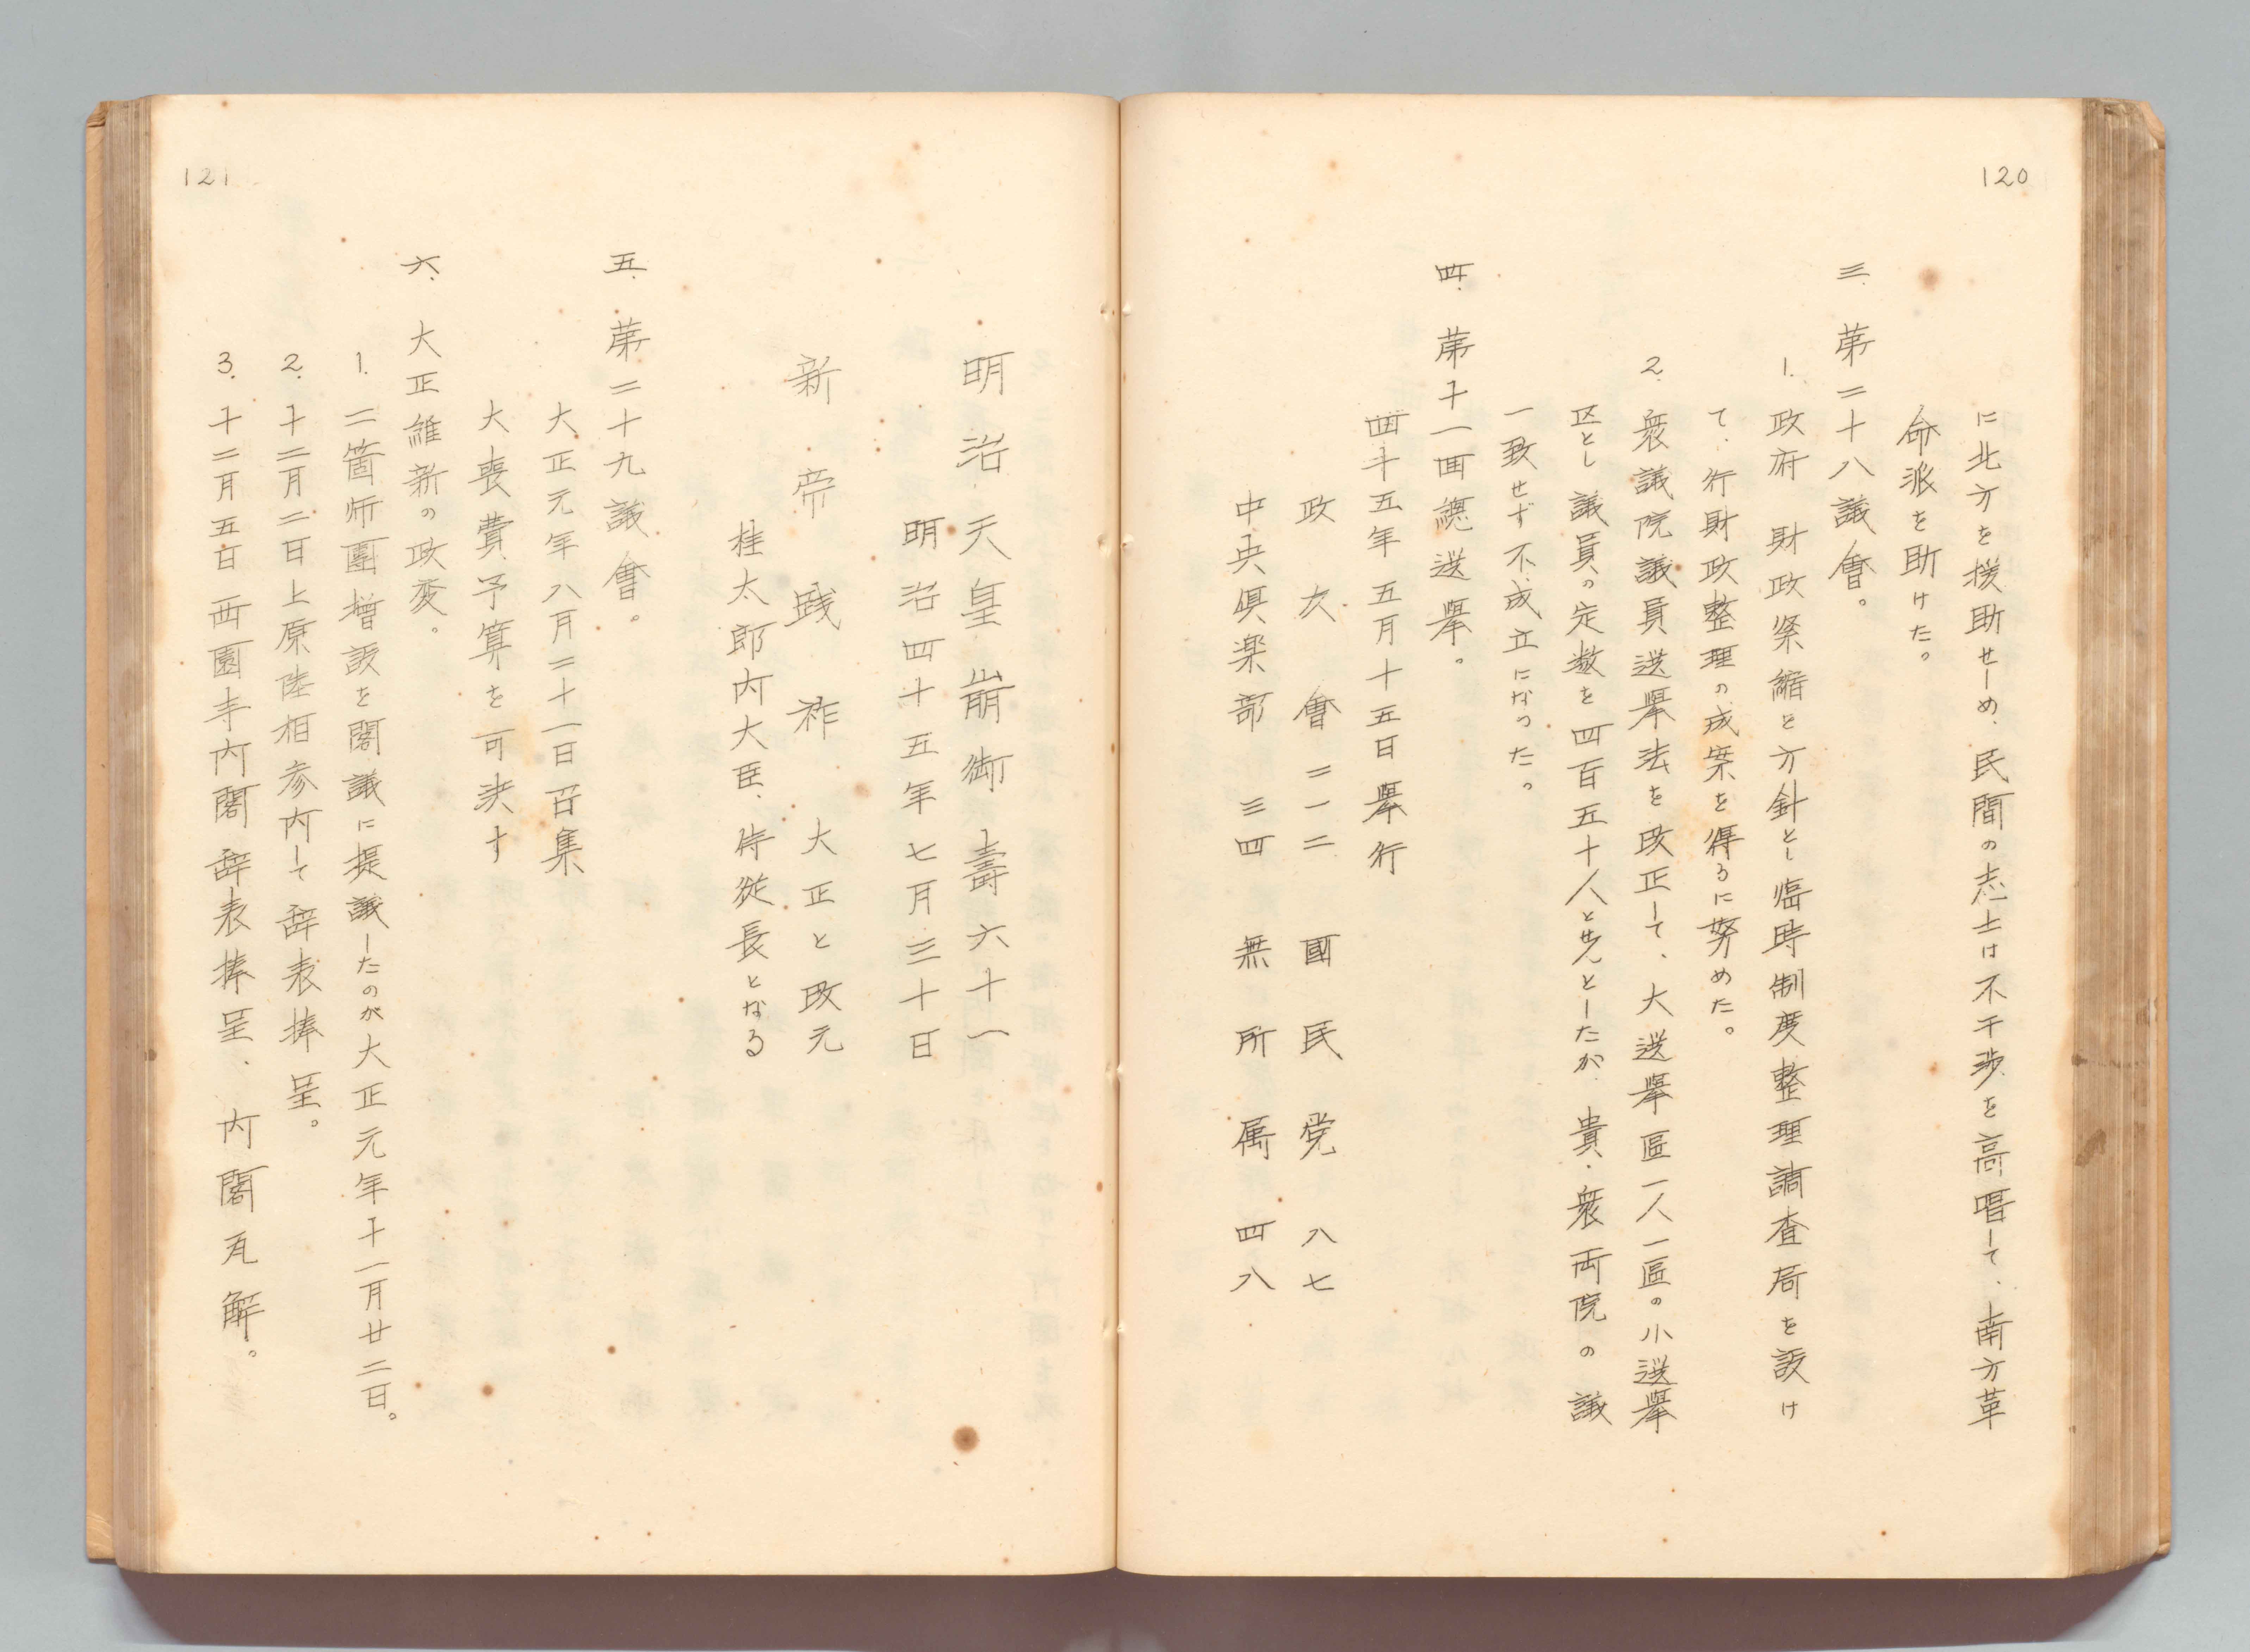 120
に北方を援助せしめ、民間の志士は不干渉を高唱して、南方革
命派を助けた。
三、第二十八議會。
1. 政府 財政緊縮を方針とし臨時制度整理調査局を設け
て、行財政整理の成案を得るに努めた。
2. 衆議院議員選挙法を改正して、大選挙區一人一區の小選挙
区とし議員の定数を四百五十人とせんとしたが、貴・衆両院の議
一致せず不成立になった。
四、第十一回總選挙。
四十五年五月十五日挙行
政友會 二一二 國民党 八七
中央倶楽部 三四 無所属 四八
明治天皇崩御 壽六十一
明治四十五年七月三十日
新帝践祚 大正と改元
桂太郎内大臣、侍従長となる
五、第二十九議會。
大正元年八月二十一日召集
大喪費予算を可決す
六、大正維新の政変。
1. 二箇師團増設を閣議に提議したのが大正元年十一月廿二日。
2. 十二月二日上原陸相参内して辞表捧呈。
3. 十二月五日西園寺内閣辞表捧呈、内閣瓦解。
121